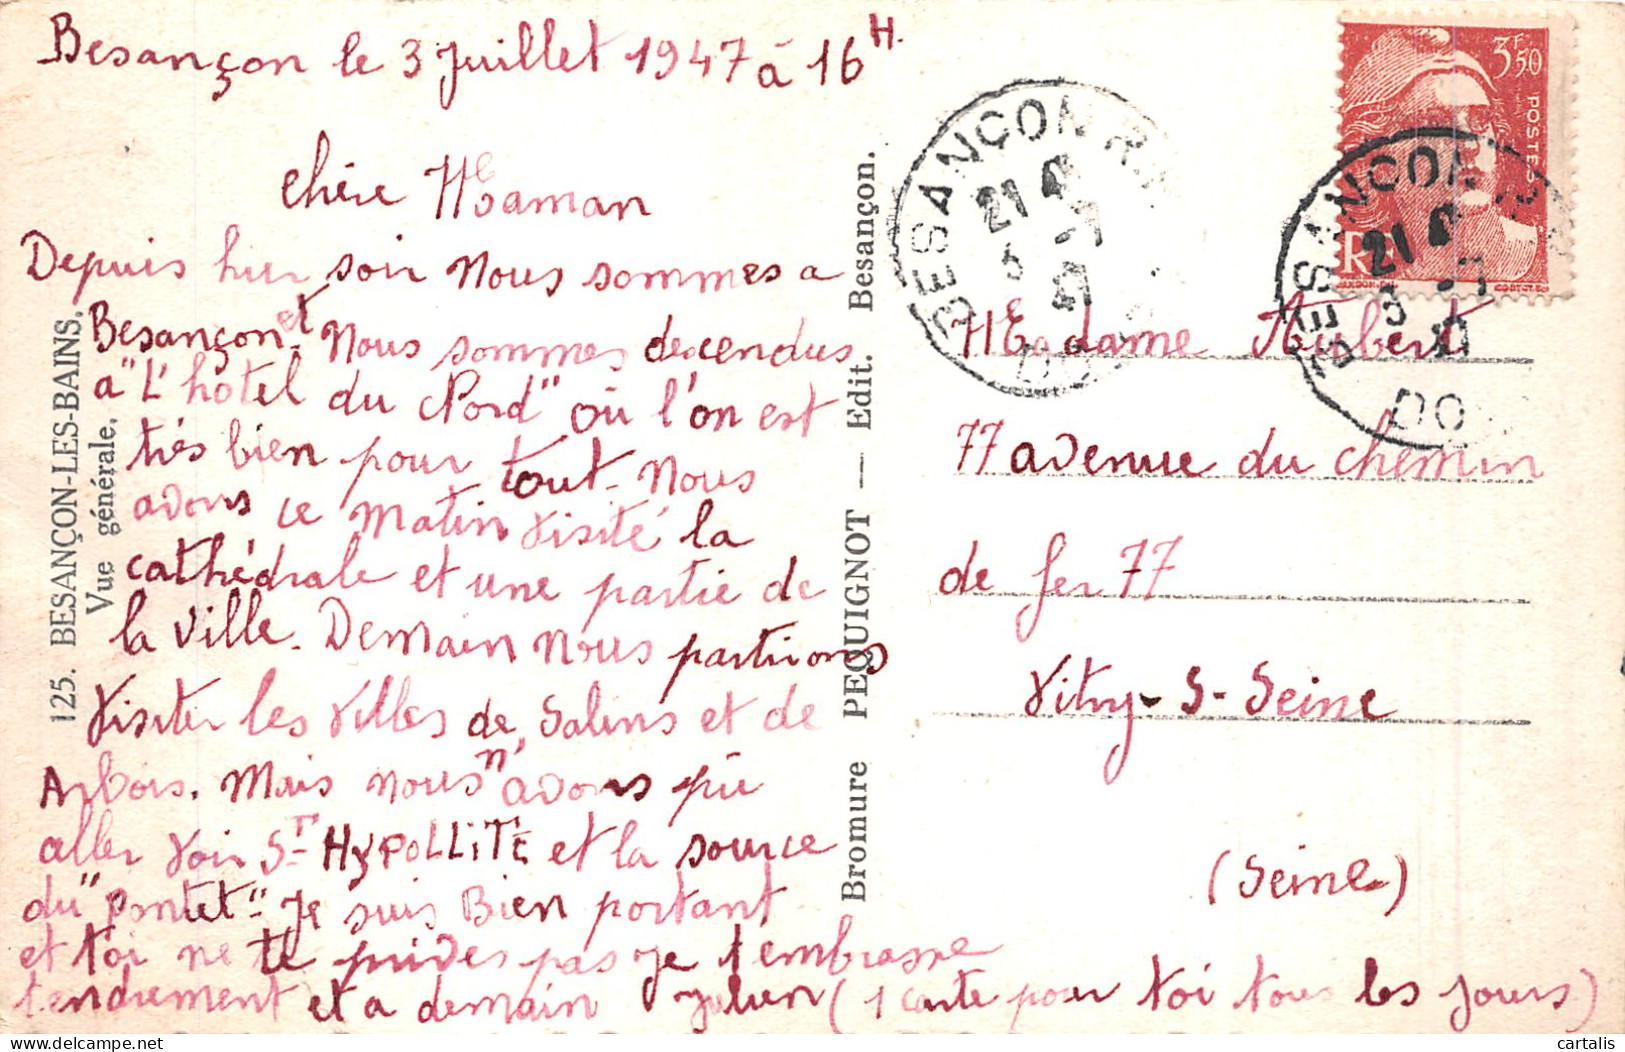 Besançon le 3 Juillet 1947 à 16 H.
chère Maman
Depuis hier soir nous sommes a
Besançon et Nous sommes descendus
a "L'hotel du Nord" où l'on est
très bien pour tout. Nous
avons ce matin visité la
cathédrale et une partie de
la ville. Demain nous partirons
visiter les villes de Salins et de
Arbois. Mais nous n'avons pu
aller voir St HYPOLLITE et la source
du "Pontet". Je suis Bien portant
et toi ne te prives pas je t'embrasse
tendrement et a demain Julien (1 carte pour toi tous les jours)
125. BESANÇON-LES-BAINS.
Vue générale.
Bromure PEQUIGNOT — Edit. Besançon.
BESANÇON R.P.
21 H
3 -7
47
DOUBS
3F50
POSTES
RF
BESANÇON R.P.
21 H
3 -7
47
DOUBS
Madame Aubert
77 avenue du chemin
de fer 77
Vitry-S-Seine
(Seine)
cartalis